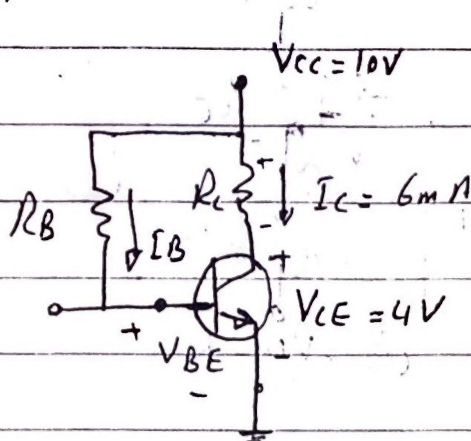 Vcc = 10V
RB
IB
Rc
Ic = 6mA
+
-
+
VCE = 4V
-
+
VBE
-